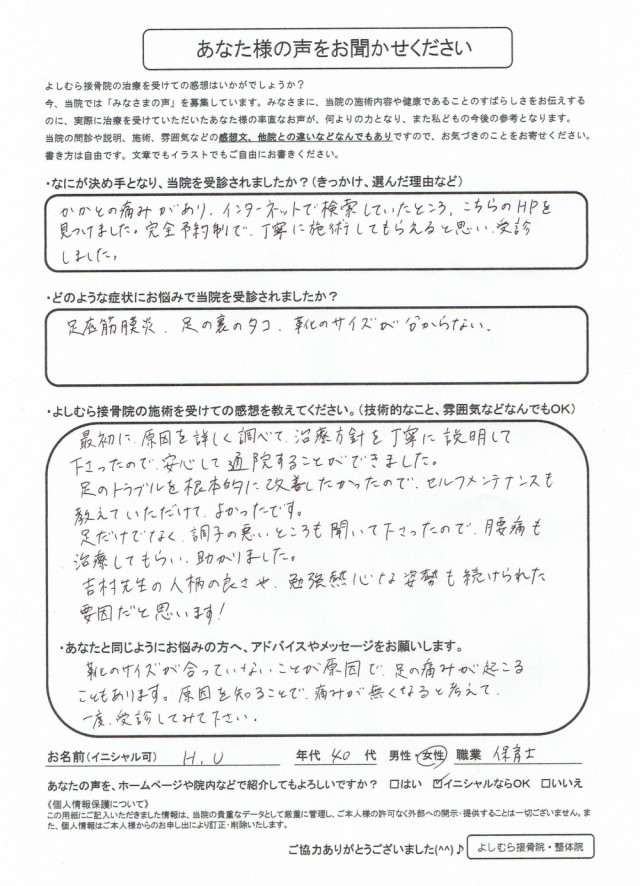 あなた様の声をお聞かせください
よしむら接骨院の治療を受けての感想はいかがでしょうか？
今、当院では「みなさまの声」を募集しています。みなさまに、当院の施術内容や健康であることのすばらしさをお伝えする
のに、実際に治療を受けていただいたあなた様の率直なお声が、何よりの力となり、また私どもの今後の参考となります。
当院の問診や説明、施術、雰囲気などの感想文、他院との違いなどなんでもありですので、お気づきのことをお寄せください。
書き方は自由です。文章でもイラストでもご自由にお書きください。
・なにが決め手となり、当院を受診されましたか？（きっかけ、選んだ理由など）
かかとの痛みがあり、インターネットで検索していたところ、こちらのHPを
見つけました。完全予約制で、丁寧に施術してもらえると思い、受診
しました。
・どのような症状にお悩みで当院を受診されましたか？
足底筋膜炎、足の裏のタコ、靴のサイズが分からない。
・よしむら接骨院の施術を受けての感想を教えてください。（技術的なこと、雰囲気などなんでもOK）
最初に、原因を詳しく調べて、治療方針を丁寧に説明して
下さったので、安心して通院することができました。
足のトラブルを根本的に改善したかったので、セルフメンテナンスも
教えていただけて、よかったです。
足だけでなく、調子の悪いところも聞いて下さったので、腰痛も
治療してもらい、助かりました。
吉村先生の人柄の良さや、勉強熱心な姿勢も続けられた
要因だと思います！
・あなたと同じようにお悩みの方へ、アドバイスやメッセージをお願いします。
靴のサイズが合っていないことが原因で、足の痛みが起こる
こともあります。原因を知ることで、痛みが無くなると考えて、
一度、受診してみて下さい。
お名前（イニシャル可） H.U 年代 40 代 男性・女性 職業 保育士
あなたの声を、ホームページや院内などで紹介してもよろしいですか？ □はい ☑イニシャルならOK □いいえ
《個人情報保護について》
この用紙にご記入いただきました情報は、当院の貴重なデータとして厳重に管理し、ご本人様の許可なく外部への開示・提供することは一切ございません。ま
た、個人情報はご本人様からのお申し出により訂正・削除いたします。
ご協力ありがとうございました(^^)♪ よしむら接骨院・整体院